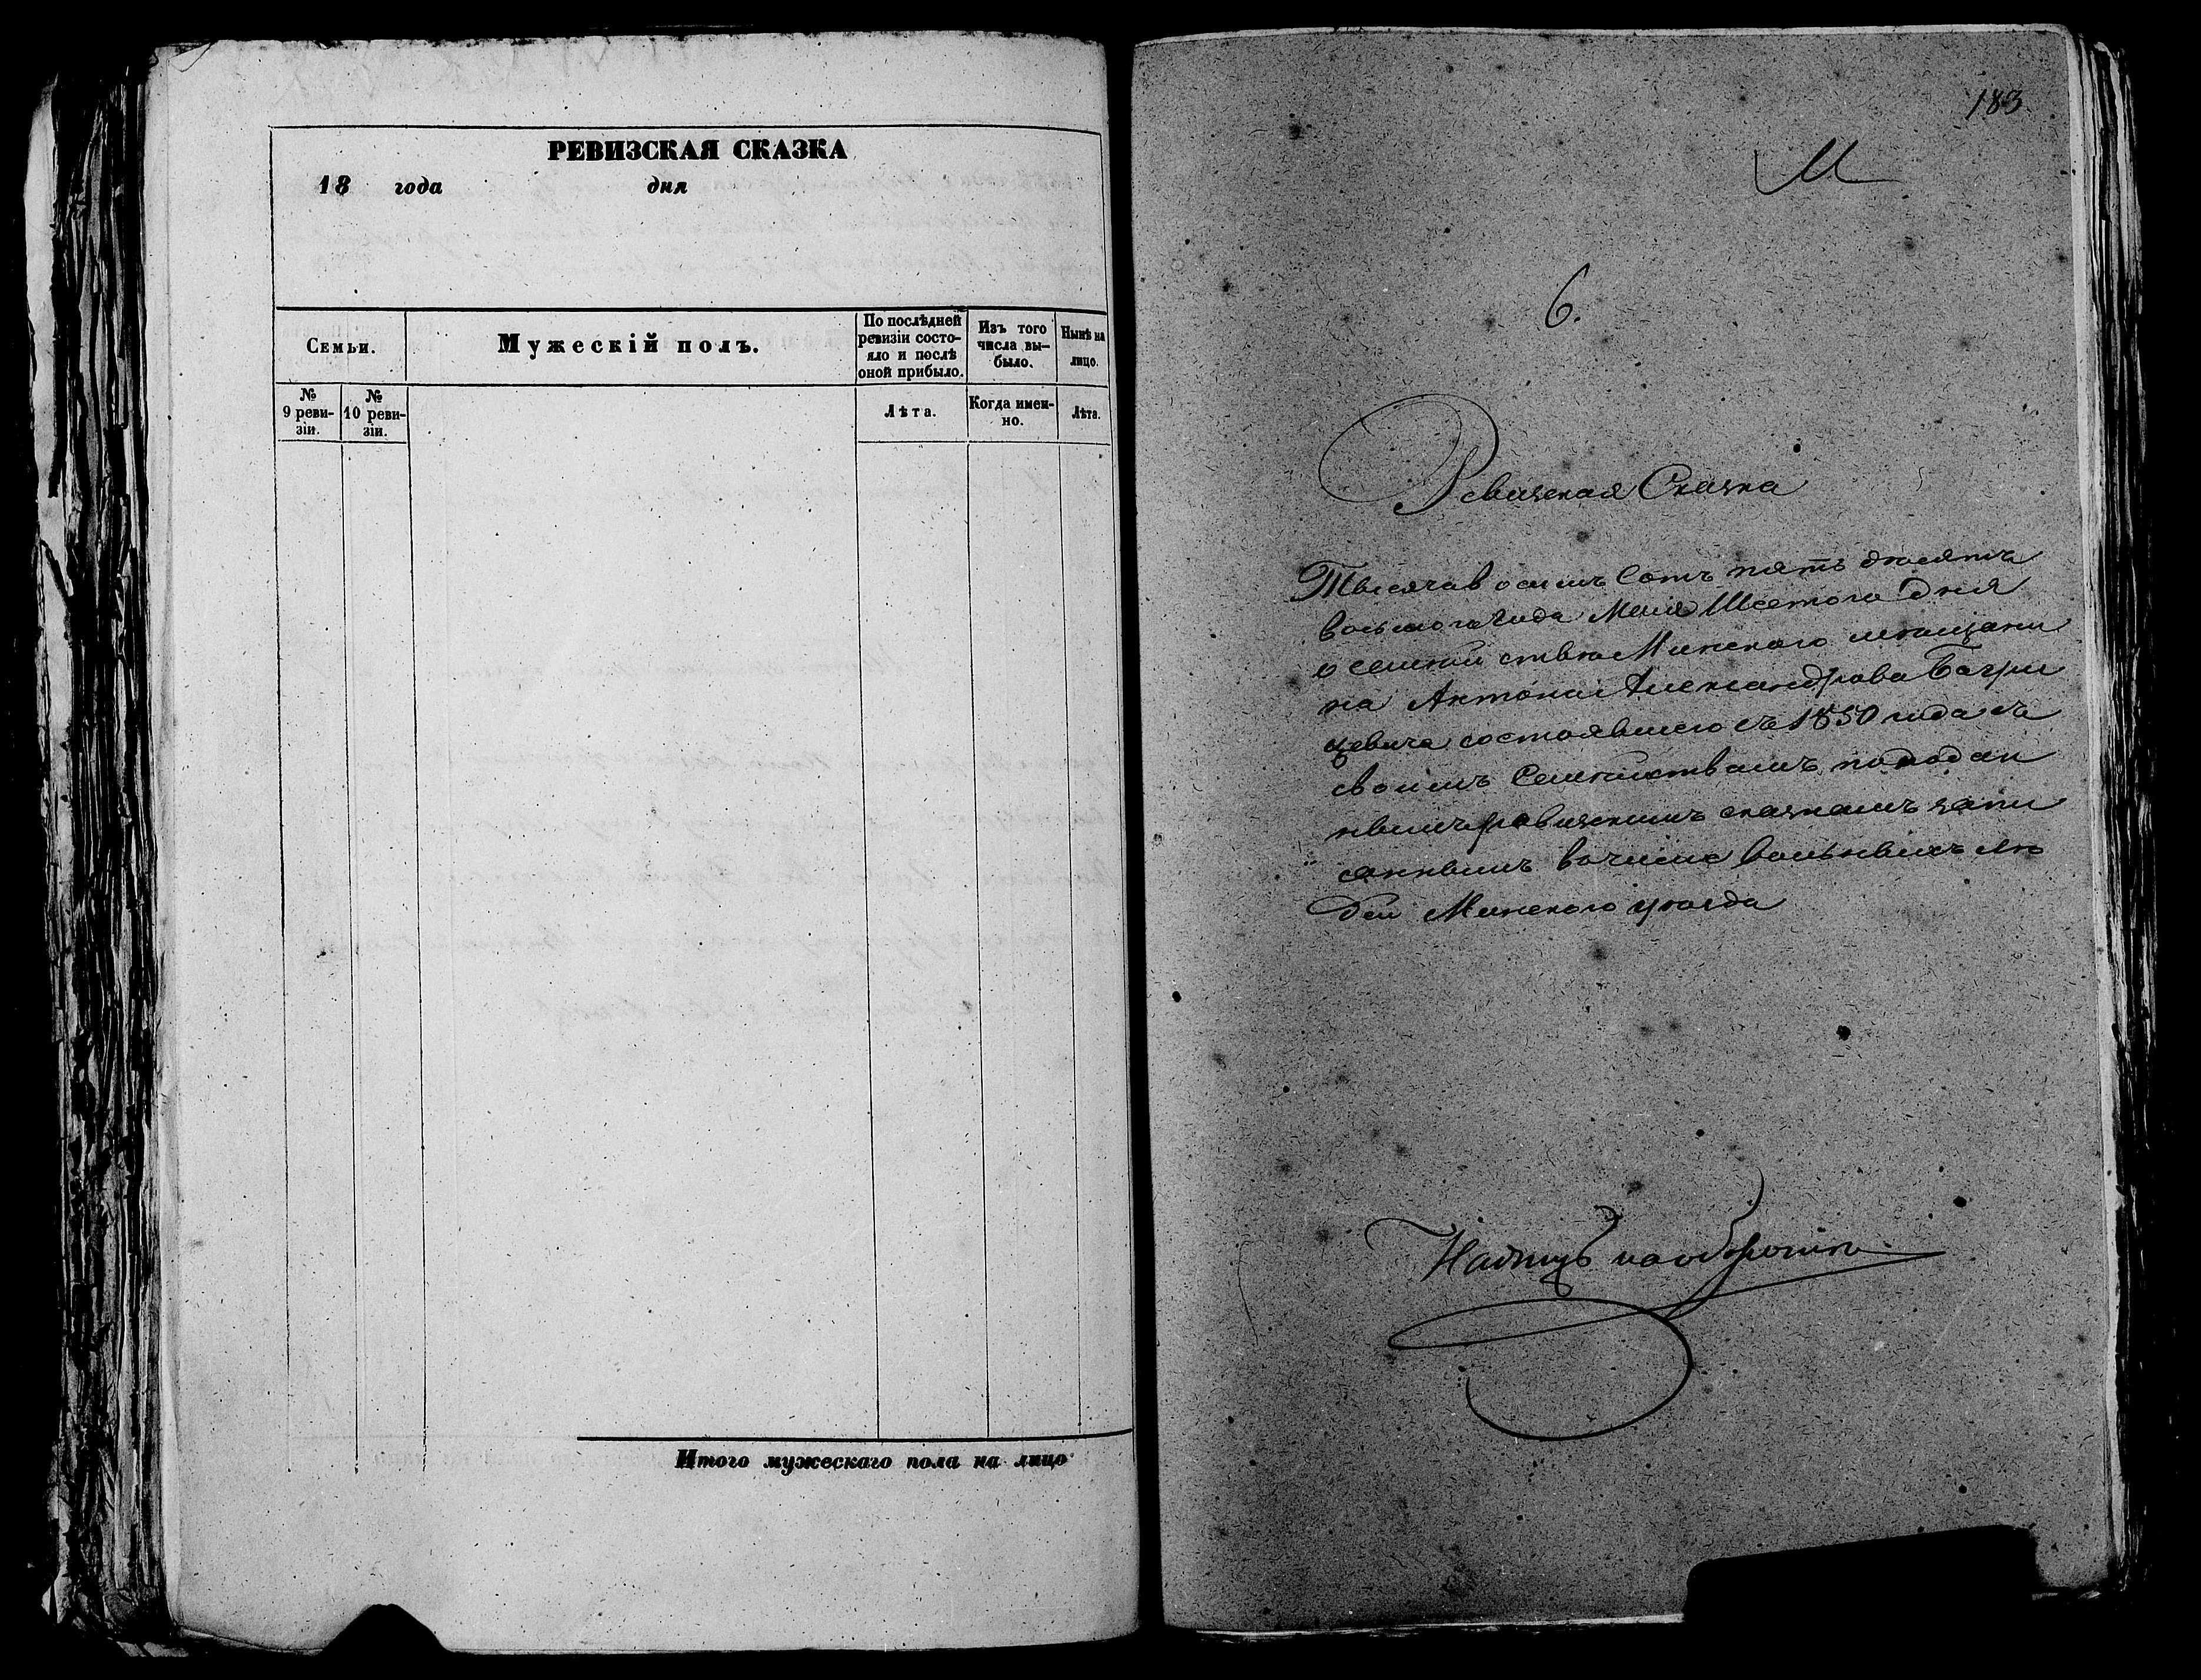 РЕВИЗСКАЯ СКАЗКА
18 года дня
Семьи.
Мужескій полъ.
По послѣдней ревизіи состо-
яло и послѣ
оной прибыло.
Изъ того
числа вы-
было.
Нынѣ на
лицо.
№
9 реви-
зіи.
№
10 реви-
зіи.
Лѣта.
Когда имен-
но.
Лѣта.
Итого мужескаго пола на лицо
183
М
6.
Ревизская Сказка
Тысяча восимъ Сотъ пять десятъ
восьмого Года Маія Шестого Дня
о семѣйствѣ Минского мѣщани
на Антона Александрова Багри
цевича состоявшего съ 1850 года съ
своимъ Семѣйствамъ поподан
нымъ ревизскимъ сказкамъ запи
саннымъ вочисле вольныхъ лю
дей Минского уѣзда